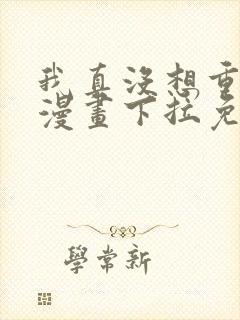 我真沒想重
漫畫下拉免
學常新